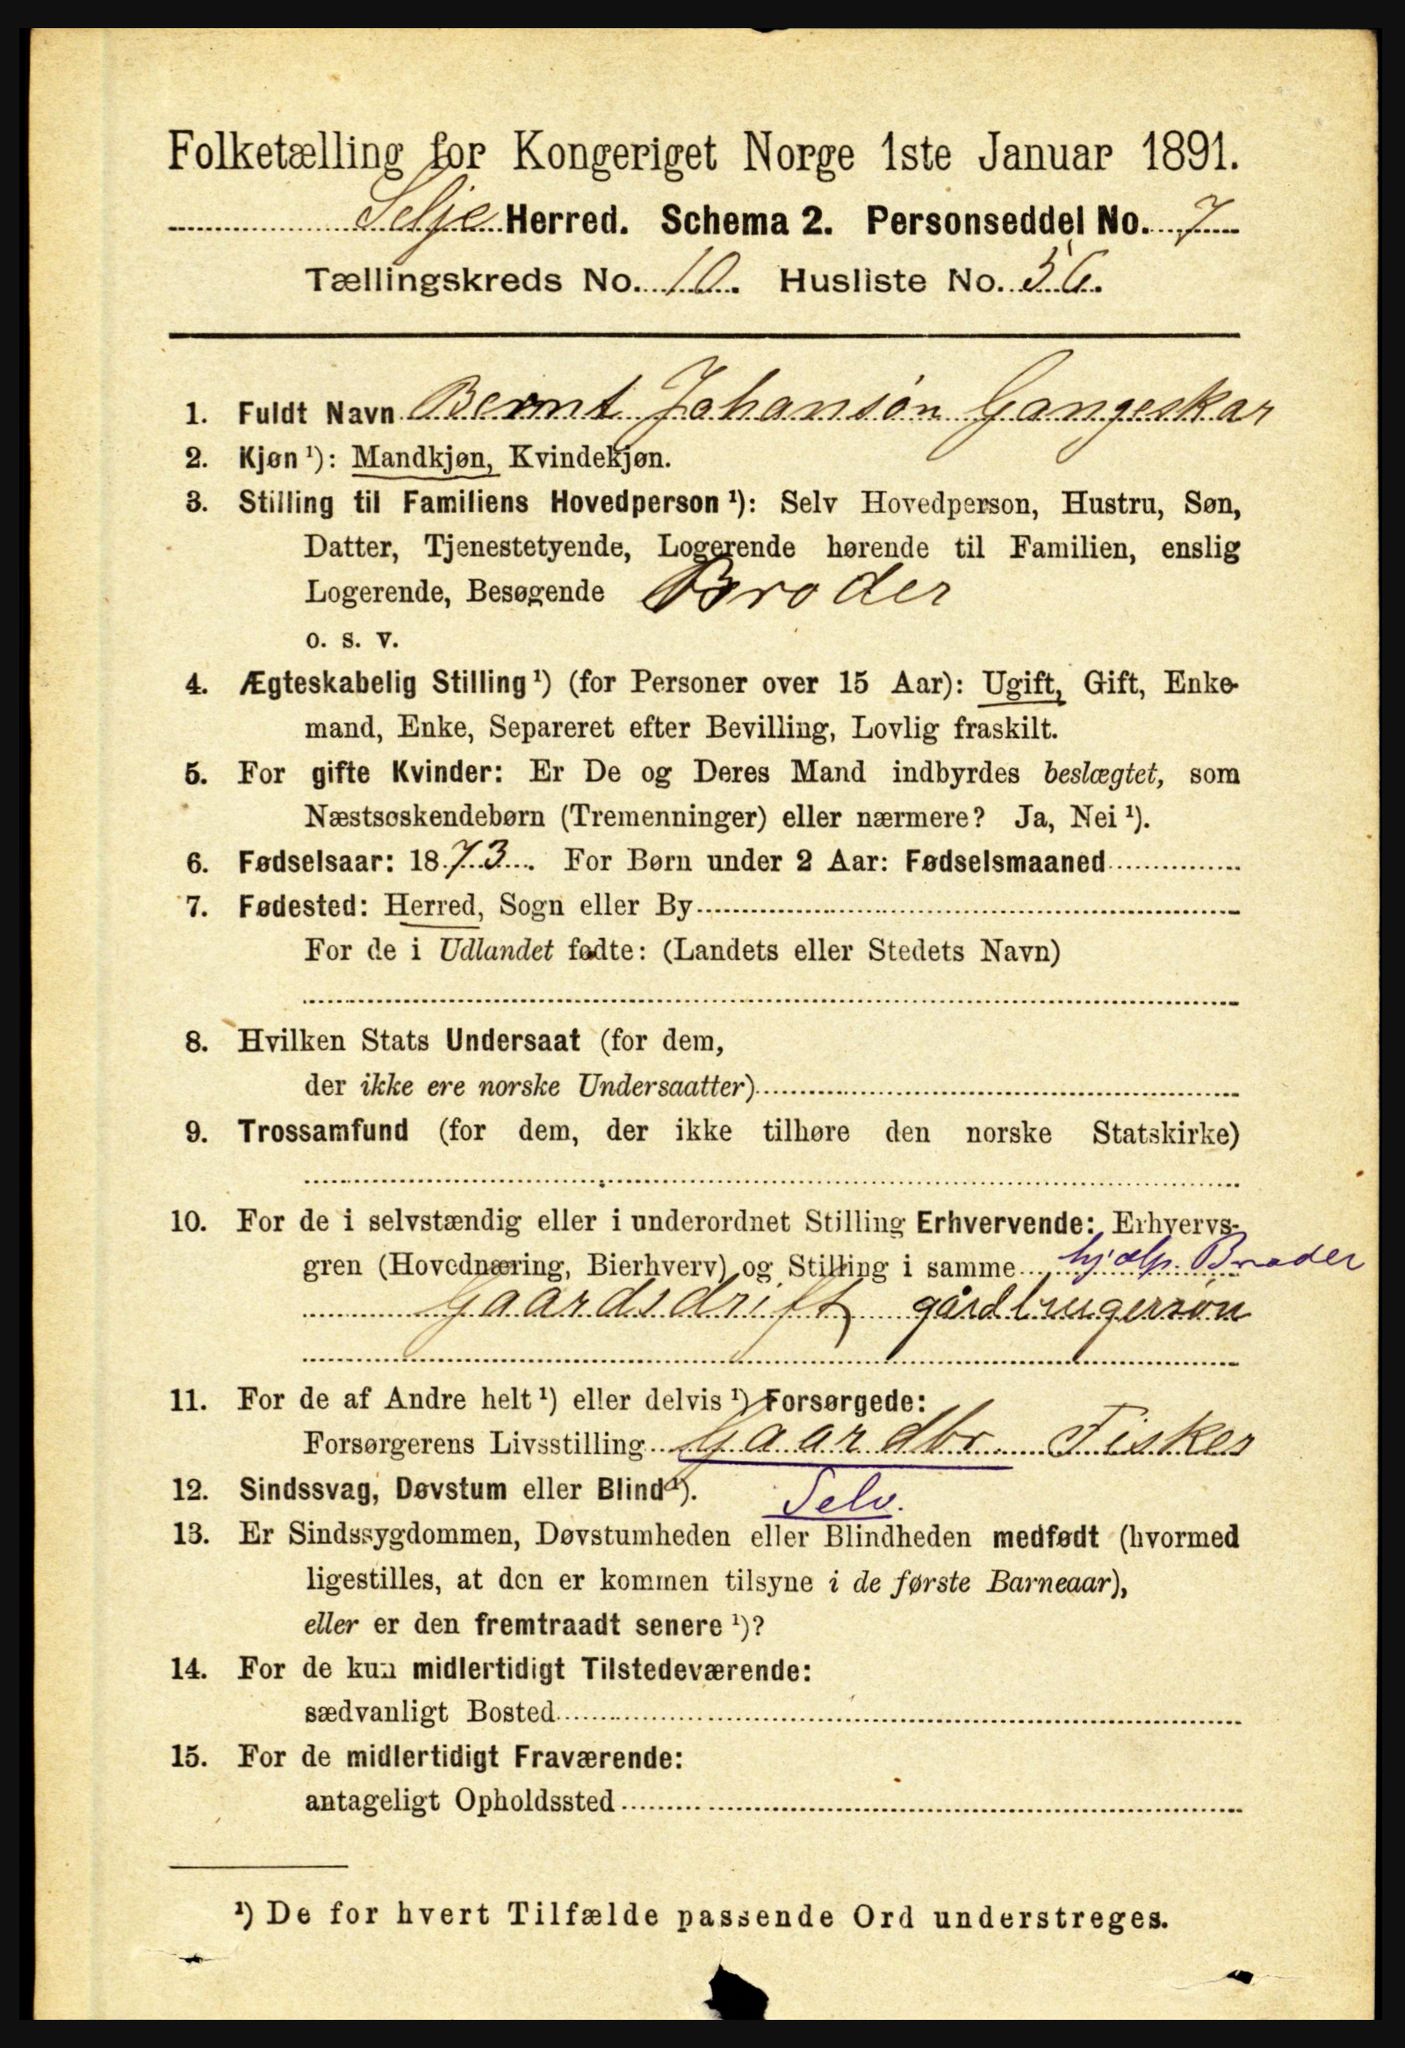 Folketælling for Kongeriget Norge 1ste Januar 1891.
Selje Herred. Schema 2. Personseddel No. 7
Tællingskreds No. 10. Husliste No. 56.
1. Fuldt Navn Bernt Johansøn Gangeskar
2. Kjøn ¹): Mandkjøn, Kvindekjøn.
3. Stilling til Familiens Hovedperson ¹): Selv Hovedperson, Hustru, Søn,
Datter, Tjenestetyende, Logerende hørende til Familien, enslig
Logerende, Besøgende Broder
o. s. v.
4. Ægteskabelig Stilling ¹) (for Personer over 15 Aar): Ugift, Gift, Enke-
mand, Enke, Separeret efter Bevilling, Lovlig fraskilt.
5. For gifte Kvinder: Er De og Deres Mand indbyrdes beslægtet, som
Næstsøskendebørn (Tremenninger) eller nærmere? Ja, Nei ¹).
6. Fødselsaar: 1873. For Børn under 2 Aar: Fødselsmaaned
7. Fødested: Herred, Sogn eller By
For de i Udlandet fødte: (Landets eller Stedets Navn)
8. Hvilken Stats Undersaat (for dem,
der ikke ere norske Undersaatter)
9. Trossamfund (for dem, der ikke tilhøre den norske Statskirke)
10. For de i selvstændig eller i underordnet Stilling Erhvervende: Erhvervs-
gren (Hovednæring, Bierhverv) og Stilling i samme hjælp. Broder
Gaardsdrift gårdbrugersøn
11. For de af Andre helt ¹) eller delvis ¹) Forsørgede:
Forsørgerens Livsstilling Gaardbr. Fisker
12. Sindssvag, Døvstum eller Blind ¹). Selv.
13. Er Sindssygdommen, Døvstumheden eller Blindheden medfødt (hvormed
ligestilles, at den er kommen tilsyne i de første Barneaar),
eller er den fremtraadt senere ¹)?
14. For de kun midlertidigt Tilstedeværende:
sædvanligt Bosted
15. For de midlertidigt Fraværende:
antageligt Opholdssted
¹) De for hvert Tilfælde passende Ord understreges.